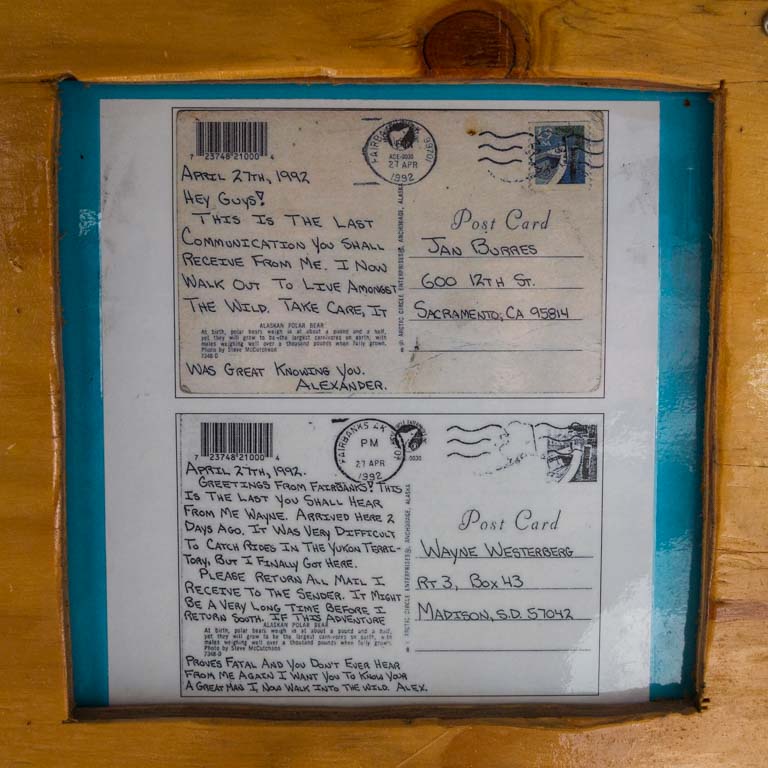 7 23748 21000 4
FAIRBANKS 99701
ACE-0030
27 APR
1992
29
APRIL 27TH, 1992
HEY GUYS!
THIS IS THE LAST
COMMUNICATION YOU SHALL
RECEIVE FROM ME. I NOW
WALK OUT TO LIVE AMONGST
THE WILD. TAKE CARE, IT
ALASKAN POLAR BEAR
At birth, polar bears weigh in at about a pound and a half,
yet they will grow to be the largest carnivores on earth, with
males weighing well over a thousand pounds when fully grown.
Photo by Steve McCutcheon
7248-D
WAS GREAT KNOWING YOU.
ALEXANDER.
© ARCTIC CIRCLE ENTERPRISES®, ANCHORAGE, ALASKA
Post Card
JAN BURRES
600 12TH ST.
SACRAMENTO, CA 95814
7 23748 21000 4
FAIRBANKS AK
PM
27 APR
1992
0030
APRIL 27TH, 1992.
GREETINGS FROM FAIRBANKS! THIS
IS THE LAST YOU SHALL HEAR
FROM ME WAYNE. ARRIVED HERE 2
DAYS AGO. IT WAS VERY DIFFICULT
TO CATCH RIDES IN THE YUKON TERRI-
TORY, BUT I FINALLY GOT HERE.
PLEASE RETURN ALL MAIL I
RECEIVE TO THE SENDER. IT MIGHT
BE A VERY LONG TIME BEFORE I
RETURN SOUTH. IF THIS ADVENTURE
ALASKAN POLAR BEAR
At birth, polar bears weigh in at about a pound and a half,
yet they will grow to be the largest carnivores on earth, with
males weighing well over a thousand pounds when fully grown.
Photo by Steve McCutcheon
7248-D
PROVES FATAL AND YOU DON'T EVER HEAR
FROM ME AGAIN I WANT YOU TO KNOW YOUR
A GREAT MAN I, NOW WALK INTO THE WILD. ALEX.
© ARCTIC CIRCLE ENTERPRISES®, ANCHORAGE, ALASKA
Post Card
WAYNE WESTERBERG
RT 3, BOX 43
MADISON, S.D. 57042